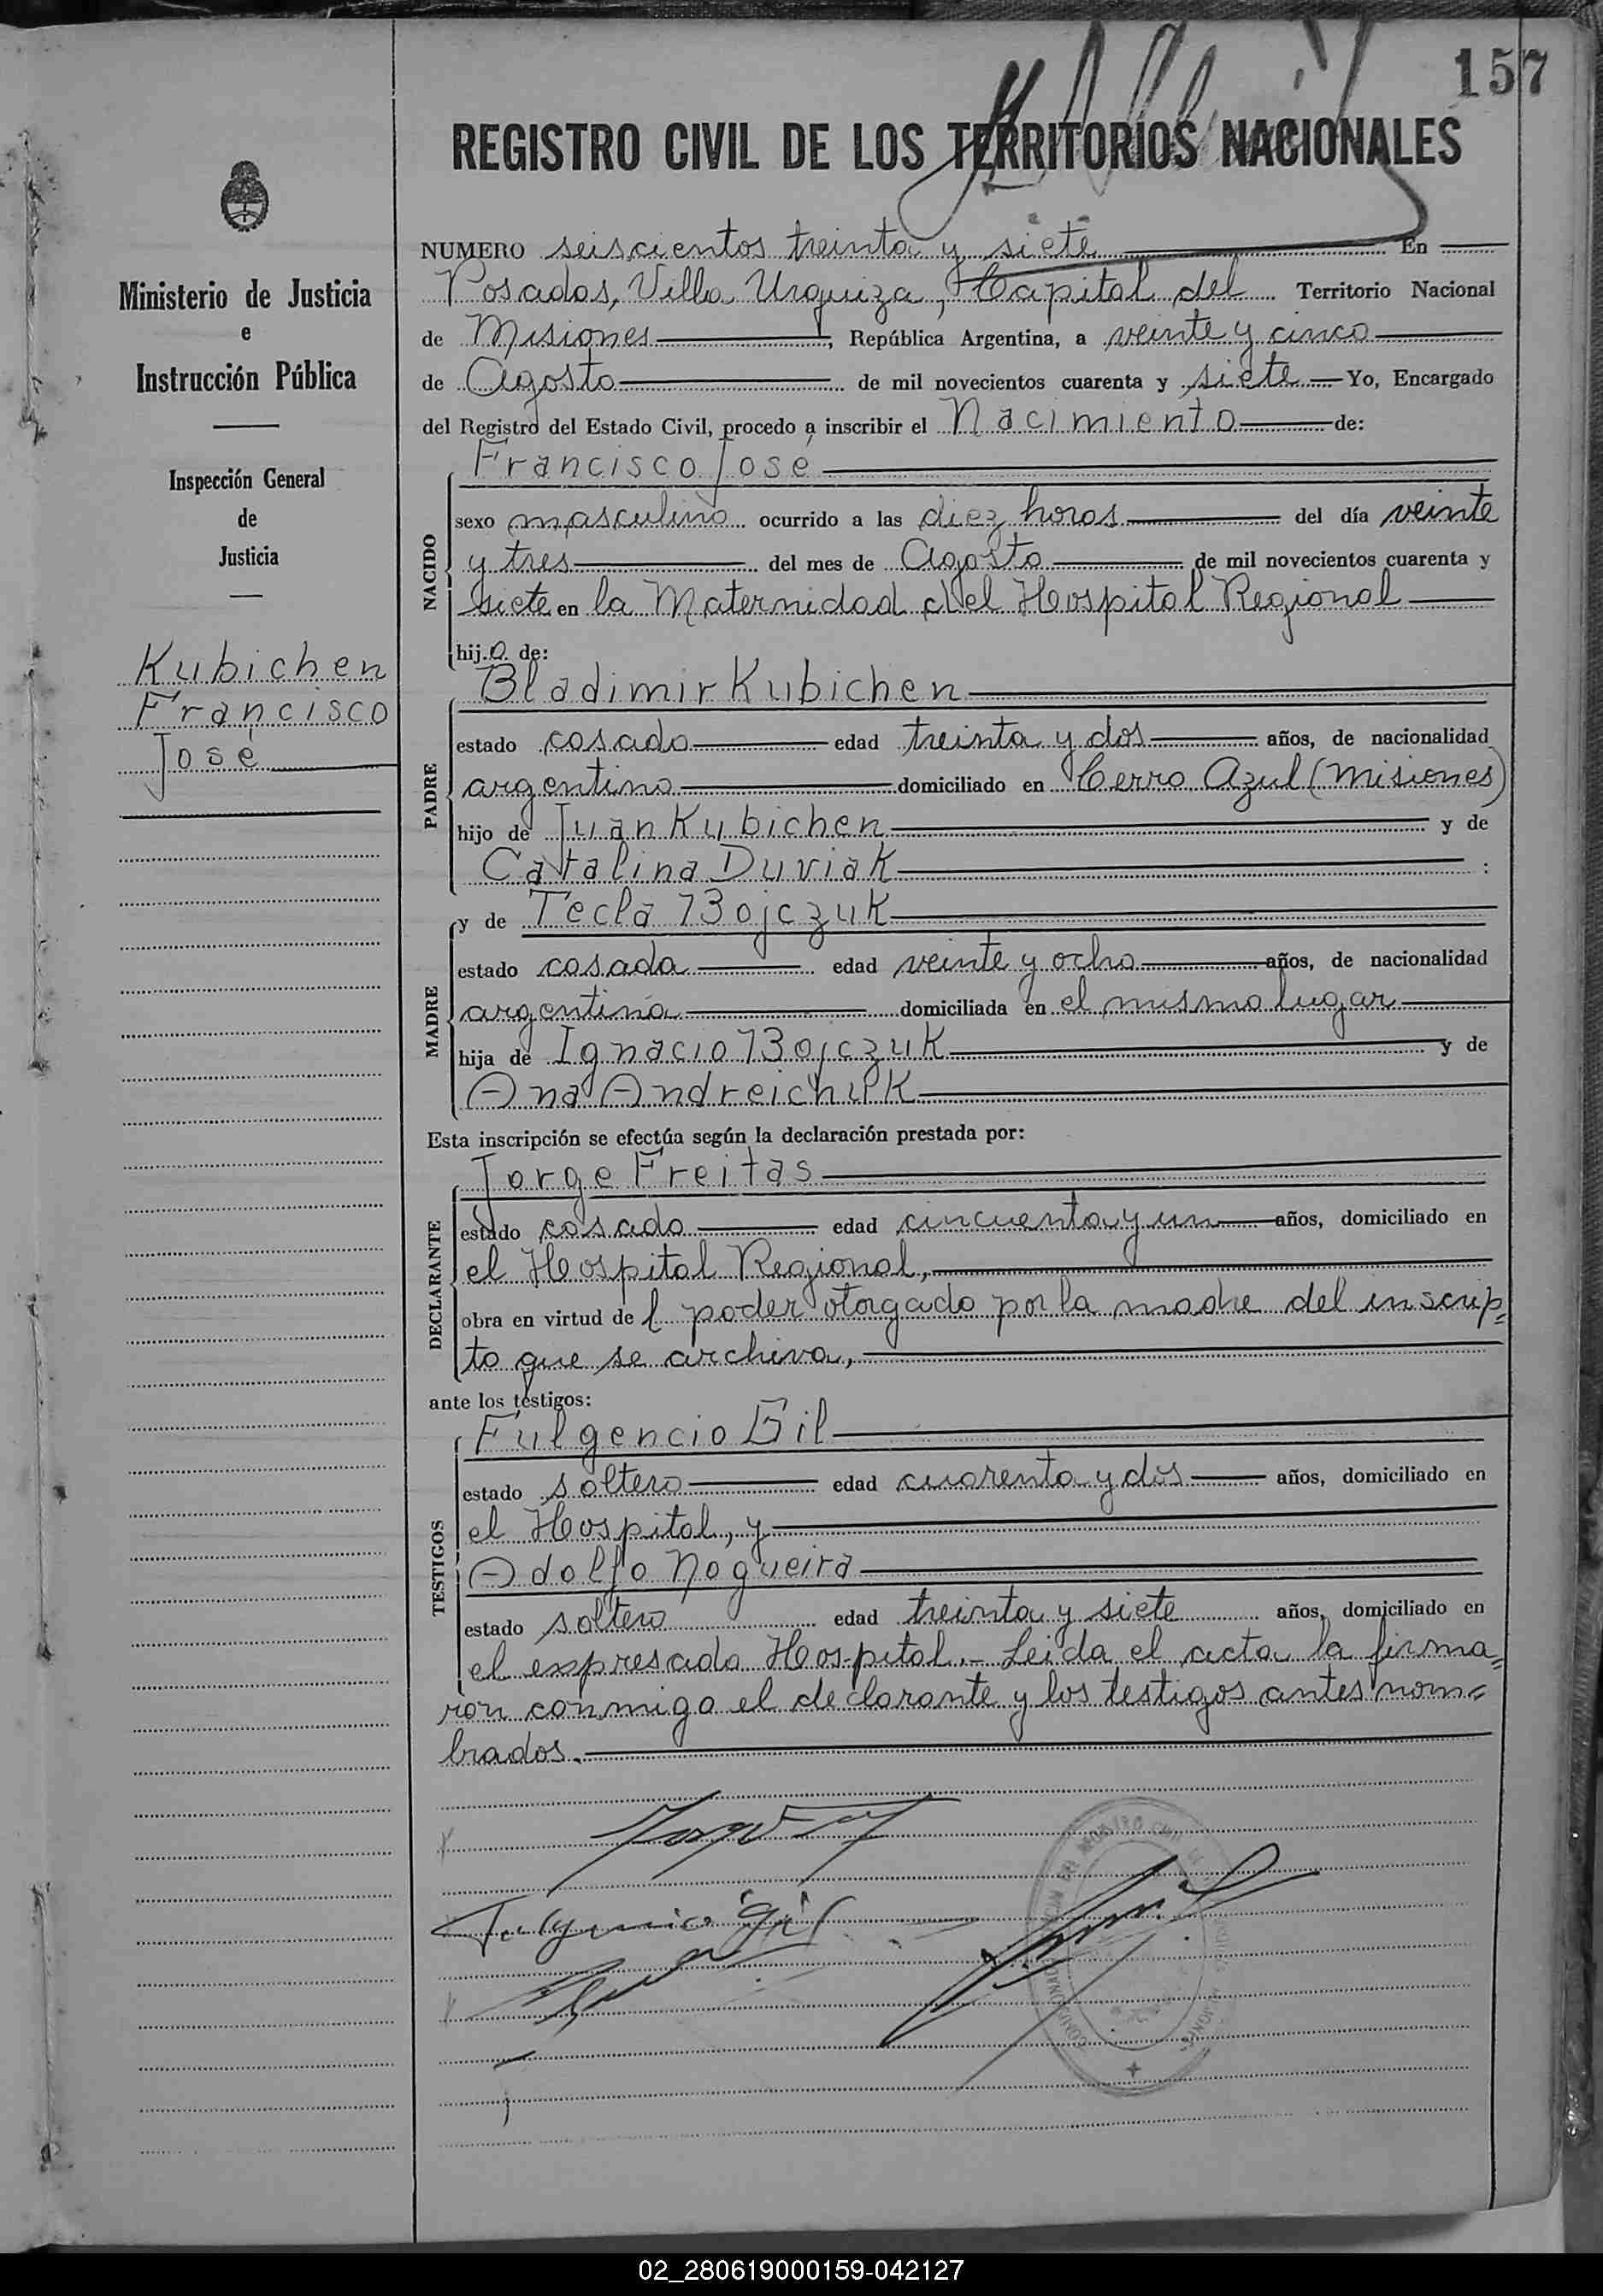 157
REGISTRO CIVIL DE LOS TERRITORIOS NACIONALES
Ministerio de Justicia
e
Instrucción Pública
Inspección General
de
Justicia
Kubichen
Francisco
José
NUMERO seiscientos treinta y siete En
Posadas, Villa Urquiza, Capital del Territorio Nacional
de Misiones, República Argentina, a veinte y cinco
de Agosto de mil novecientos cuarenta y siete Yo, Encargado
del Registro del Estado Civil, procedo a inscribir el Nacimiento de:
NACIDO
Francisco José
sexo masculino ocurrido a las diez horas del día veinte
y tres del mes de Agosto de mil novecientos cuarenta y
siete en la Maternidad del Hospital Regional
hijo de:
PADRE
Bladimir Kubichen
estado casado edad treinta y dos años, de nacionalidad
argentino domiciliado en Cerro Azul (Misiones)
hijo de Juan Kubichen y de
Catalina Duviak :
MADRE
y de Tecla Bojczuk
estado casada edad veinte y ocho años, de nacionalidad
argentina domiciliada en el mismo lugar
hija de Ignacio Bojczuk y de
Ana Andreichuk
Esta inscripción se efectúa según la declaración prestada por:
DECLARANTE
Jorge Freitas
estado casado edad cincuenta y un años, domiciliado en
el Hospital Regional,
obra en virtud del poder otorgado por la madre del inscrip=
to que se archiva,
ante los testigos:
TESTIGOS
Fulgencio Gil
estado soltero edad cuarenta y dos años, domiciliado en
el Hospital, y
Adolfo Nogueira
estado soltero edad treinta y siete años, domiciliado en
el expresado Hospital.- Leida el acta la firma=
ron conmigo el declarante y los testigos antes nom=
brados.
Fulgencio Gil
02_280619000159-042127